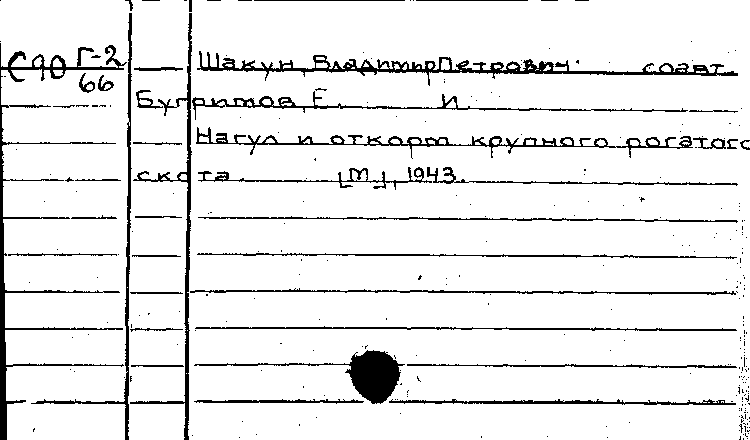 С90 Г-2/66 Шакун, Владимир Петрович. соавт.
Бугримов, Е. и
Нагул и откорм крупного рогатого
скота. [М.], 1943.